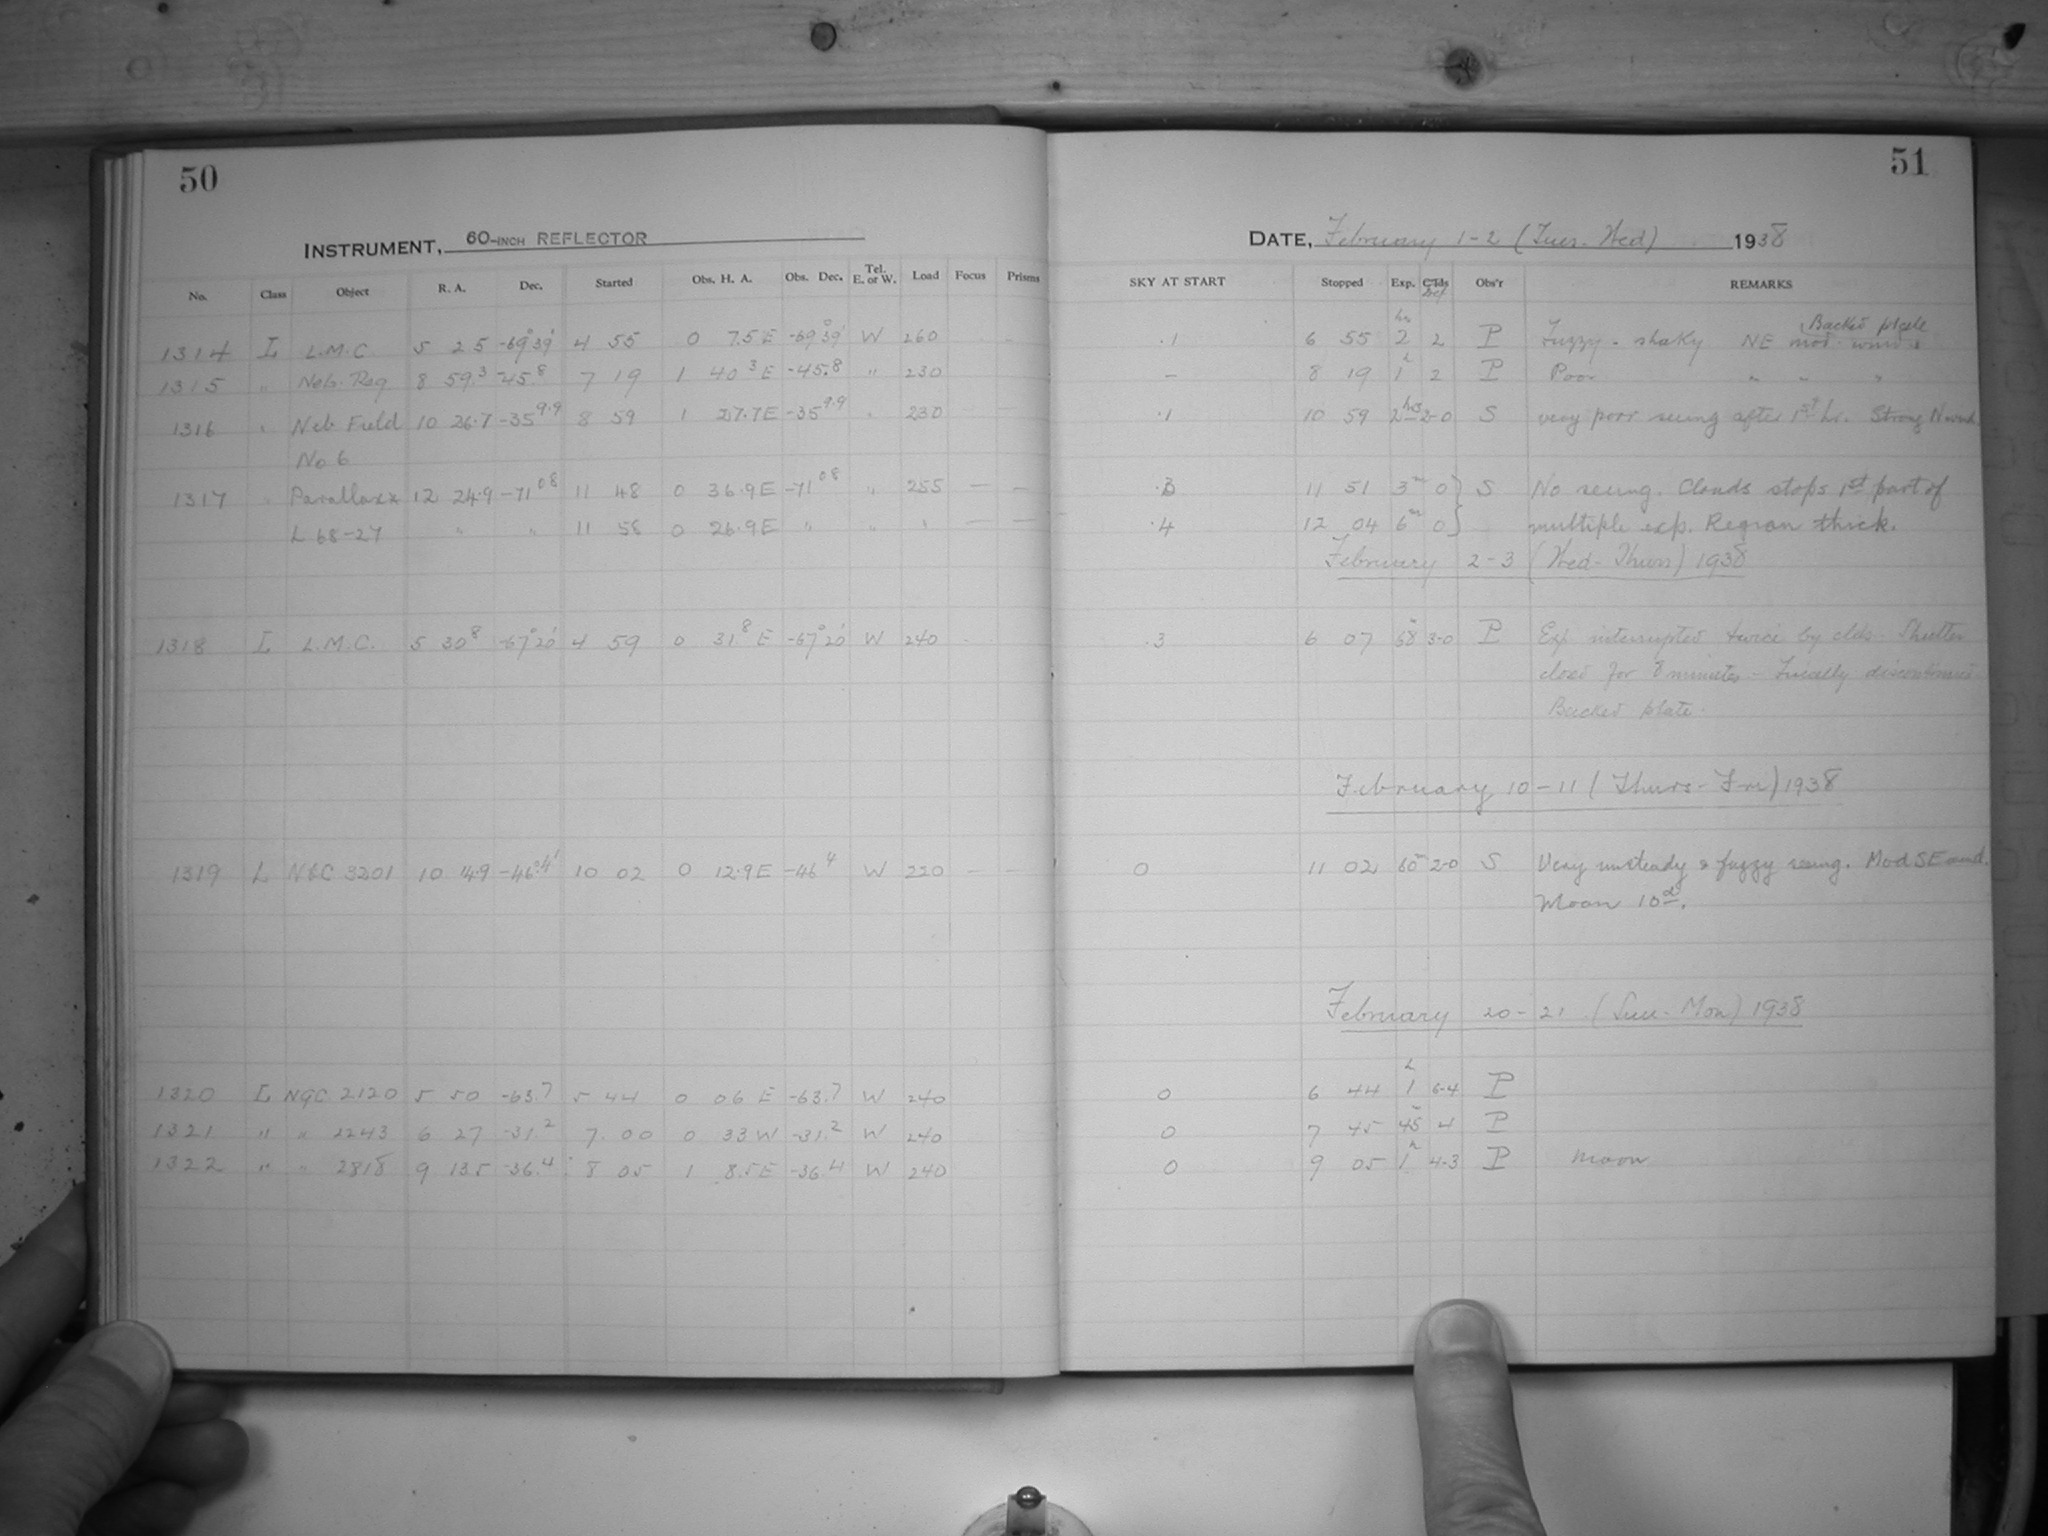 50
INSTRUMENT, 60-INCH REFLECTOR
No. Class Object R. A. Dec. Started Obs. H. A. Obs. Dec. Tel. E. or W. Load Focus Prisms
1314 L L.M.C. 5 25 -69° 39' 4 55 0 7.5 E -69° 39' W 260
1315 " Neb. Reg 8 59.3 -45.8 7 19 1 40.3 E -45.8 " 230
1316 " Neb Field 10 26.7 -35 9.9 8 59 1 27.7 E -35 9.9 " 230 — —
No 6
1317 " Parallax 12 24.9 -71 08 11 48 0 36.9 E -71 08 " 255 — —
L 68-27 " " 11 58 0 26.9 E " " " — —
1318 L L.M.C. 5 30.8 -67° 20' 4 59 0 31.8 E -67° 20' W 240
1319 L NGC 3201 10 14.9 -46° 4' 10 02 0 12.9 E -46 4 W 220 — —
1320 L NGC 2120 5 50 -63.7 5 44 0 06 E -63.7 W 240
1321 " " 2243 6 27 -31.2 7 00 0 33 W -31.2 W 240
1322 " " 2818 9 13.5 -36.4 8 05 1 8.5 E -36.4 W 240
51
DATE, February 1-2 (Tues-Wed) 1938
SKY AT START Stopped Exp. Obs'r REMARKS
.1 6 55 2 hr 2 P Fuzzy - shaky NE mod. wind Backed plate
— 8 19 1 h 2 P Poor " " "
.1 10 59 2 hrs 2-0 S very poor seeing after 1st hr. Strong N wind.
.3 11 51 3m 0 } S No seeing. Clouds stops 1st part of
.4 12 04 6m 0 } multiple exp. Region thick.
February 2-3 (Wed-Thurs) 1938
.3 6 07 68m 3-0 P Exp interrupted twice by clds. Shutter
closed for 8 minutes - Finally discontinued.
Backed plate.
February 10-11 (Thurs-Fri) 1938
0 11 02 60m 2-0 S Very unsteady & fuzzy seeing. Mod SE wind.
Moon 10d.
February 20-21 (Sun-Mon) 1938
0 6 44 1 h 6-4 P
0 7 45 45m 4 P
0 9 05 1 h 4-3 P Moon